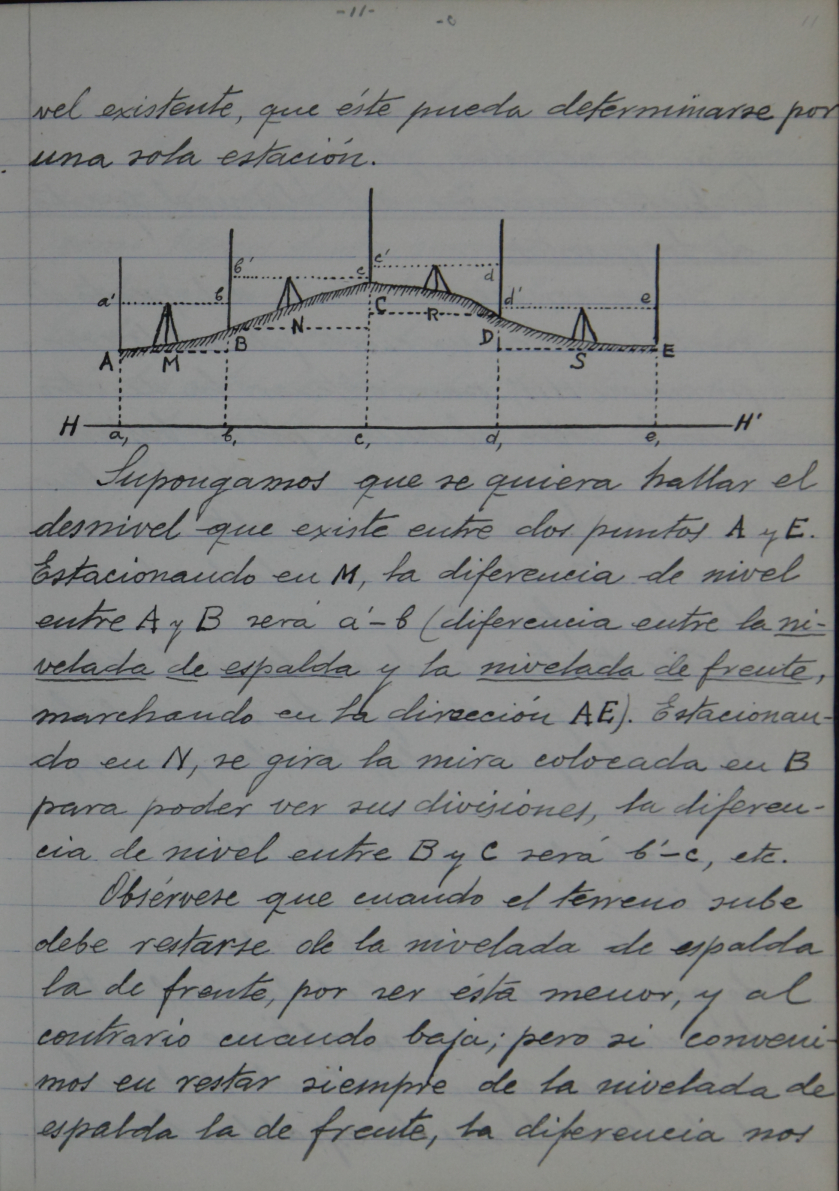 -11-
11
vel existente, que éste pueda determinarse por
una sola estación.
a' b b' c c' d d' e
A M B N C R D S E
H a, b, c, d, e, H'
Supongamos que se quiera hallar el
desnivel que existe entre dos puntos A y E.
Estacionando en M, la diferencia de nivel
entre A y B será a'-b (diferencia entre la ni-
velada de espalda y la nivelada de frente,
marchando en la dirección AE). Estacionan-
do en N, se gira la mira colocada en B
para poder ver sus divisiones, la diferen-
cia de nivel entre B y C será b'-c, etc.
Obsérvese que cuando el terreno sube
debe restarse de la nivelada de espalda
la de frente, por ser ésta menor, y al
contrario cuando baja; pero si conveni-
mos en restar siempre de la nivelada de
espalda la de frente, la diferencia nos